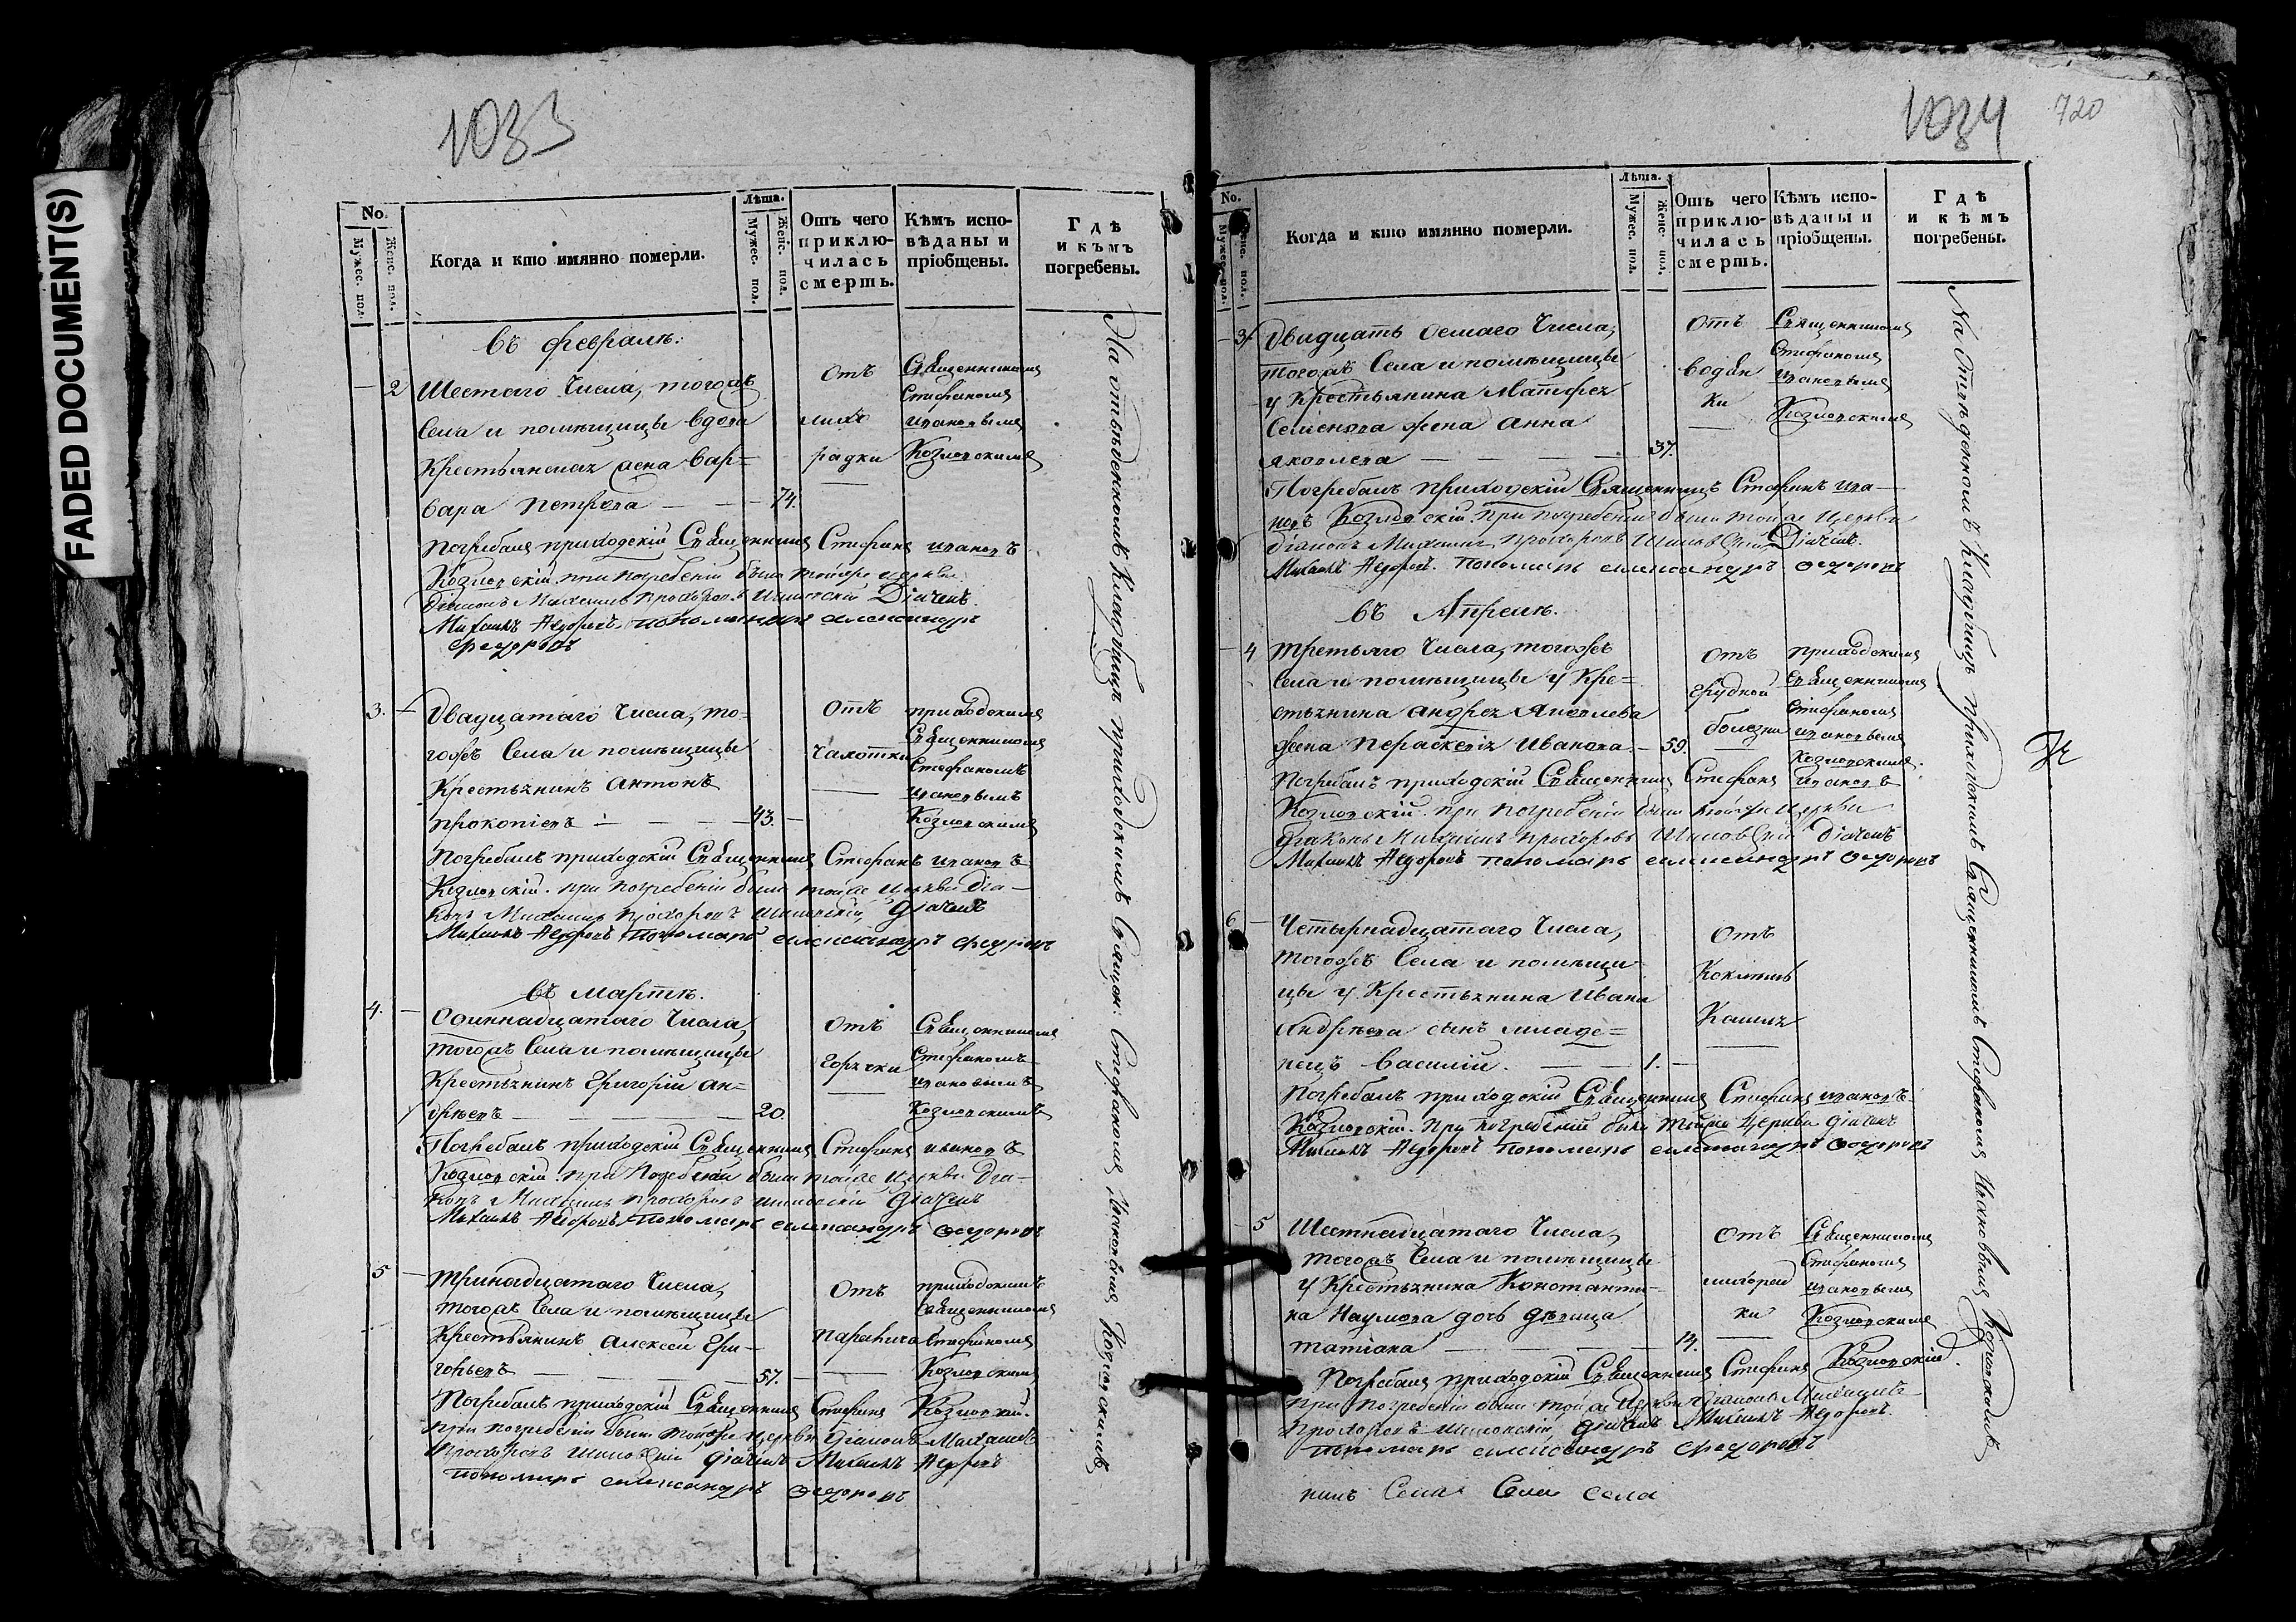 FADED DOCUMENT(S)
1033
No.
Мужес. пол.
Женс. пол.
Когда и кто имянно померли.
Лѣта.
Мужес. пол.
Женс. пол.
Отъ чего
приклю-
чилась
смерть.
Кѣмъ испо-
вѣданы и
пріобщены.
Гдѣ
и къмъ
погребены.
въ февралѣ:
2
Шестаго Числа, тогожъ
Села и помѣщицы вдова
Крестьянская жена Вар=
вара Петрова — — 74.
отъ
лихо
радки
Священникомъ
Стефаномъ
Ивановымъ
Козловскимъ
Погребалъ приходскій Священникъ Стефанъ Ивановъ
Козловскій. при погребеніи были тойже церкви
діаконъ Михаилъ Прохоровъ Шиловскій Дїачекъ
Михаилъ Ѳедоровъ. пономарь Александръ
Федоровъ
3. —
Двадцатаго Числа, то-
гожъ Села и помѣщицы
Крестьянинъ Антонъ
Прокопіевъ — — 43. —
отъ
Чахотки
приходскимъ
Священникомъ
Стефаномъ
Ивановымъ
Козловскимъ
Погребалъ приходскій Священникъ Стефанъ Ивановъ
Козловскій. при погребеніи были тойже церкви діа-
конъ Михаилъ Прохоровъ Шиловскій, діачекъ
Михаилъ Ѳедоровъ пономарь Александръ Федоровъ
въ мартѣ.
4. —
Одиннадцатаго Числа,
тогожъ Села и помѣщицы
Крестьянинъ Григорій Ан=
дрѣевъ — — — 20.
отъ
Горячки
Священникомъ
Стефаномъ
Ивановымъ
Козловскимъ
Погребалъ приходскій Священникъ Стефанъ Ивановъ
Козловскій. при погребеніи были тойже церкви діа-
конъ Михаилъ Прохоровъ Шиловскій діачекъ
Михаилъ Ѳедоровъ, пономарь Александръ Ѳедоровъ
5 —
тринадцатаго Числа,
тогожъ Села и помѣщицы
Крестьянинъ Алексей Гри-
горьевъ — — — 57. —
отъ
Паралича
приходскимъ
Священникомъ
Стефаномъ
Козловскимъ
Погребалъ приходскій Священникъ Стефанъ Козловскій.
при погребеніи были тойже церкви діаконъ Михаилъ
Прохоровъ Шиловскій діачекъ Михаилъ Ѳедоровъ
пономарь Александръ Ѳедоровъ
На отвѣденномъ Кладбищѣ приходскимъ Священ: Стефаномъ Ивановымъ Козловскимъ
1034
720
No.
Мужес. пол.
Женс. пол.
Когда и кто имянно померли.
Лѣта.
Мужес. пол.
Женс. пол.
Отъ чего
приклю-
чилась
смерть.
Кѣмъ испо-
вѣданы и
пріобщены.
Гдѣ
и кѣмъ
погребены.
— 3
Двадцать осмаго Числа,
тогожъ Села и помѣщицы
у Крестьянина Матфея
Семенова жена Анна
Яковлева — — — 37.
отъ
водян
ки
Священникомъ
Стефаномъ
Ивановымъ
Козловскимъ
Погребалъ приходскій Священникъ Стефанъ Ива-
новъ Козловскій. при погребеніи были тойже Церкви
діаконъ Михаилъ Прохоровъ Шиловскій Діачекъ.
Михаилъ Ѳедоровъ. пономарь Александръ Ѳедоровъ
въ Апрелѣ.
— 4
третьяго Числа, тогожъ
Села и помѣщицы у Кре=
стьянина Андрея Яковлева
жена Параскевія Иванова. — 59.
отъ
Грудной
болезни
приходскимъ
Священникомъ
Стефаномъ
Ивановымъ
Козловскимъ.
Погребалъ приходскій Священникъ Стефанъ Ивановъ
Козловскій. при погребеніи были тойже церкви
діаконъ Михаилъ Прохоровъ Шиловскій діачекъ
Михаилъ Ѳедоровъ пономарь Александръ Ѳедоровъ
6 —
Четырнадцатаго Числа,
тогожъ Села и помѣщи-
цы у Крестьянина Ивана
Андрѣева сынъ младе=
нецъ Василій. — — 1. —
отъ
Кашля
Погребалъ приходскій Священникъ Стефанъ Ивановъ
Козловскій. при погребеніи были тойже Церкви діачекъ
Михаилъ Ѳедоровъ пономарь Александръ Ѳедоровъ
— 5
Шестнадцатаго Числа,
тогожъ Села и помѣщицы
у Крестьянина Константи-
на Наумова дочь дѣвица
татіана — — — 14.
отъ
лихорад
ки
Священникомъ
Стефаномъ
Ивановымъ
Козловскимъ
Погребалъ приходскій Священникъ Стефанъ Козловскій.
при погребеніи были тойже Церкви діаконъ Михаилъ
Прохоровъ Шиловскій, діачекъ Михаилъ Ѳедоровъ.
пономарь Александръ Федоровъ
Села Села села
На Отвѣденномъ Кладбищѣ приходскимъ Священникомъ Стефаномъ Ивановымъ Козловскимъ